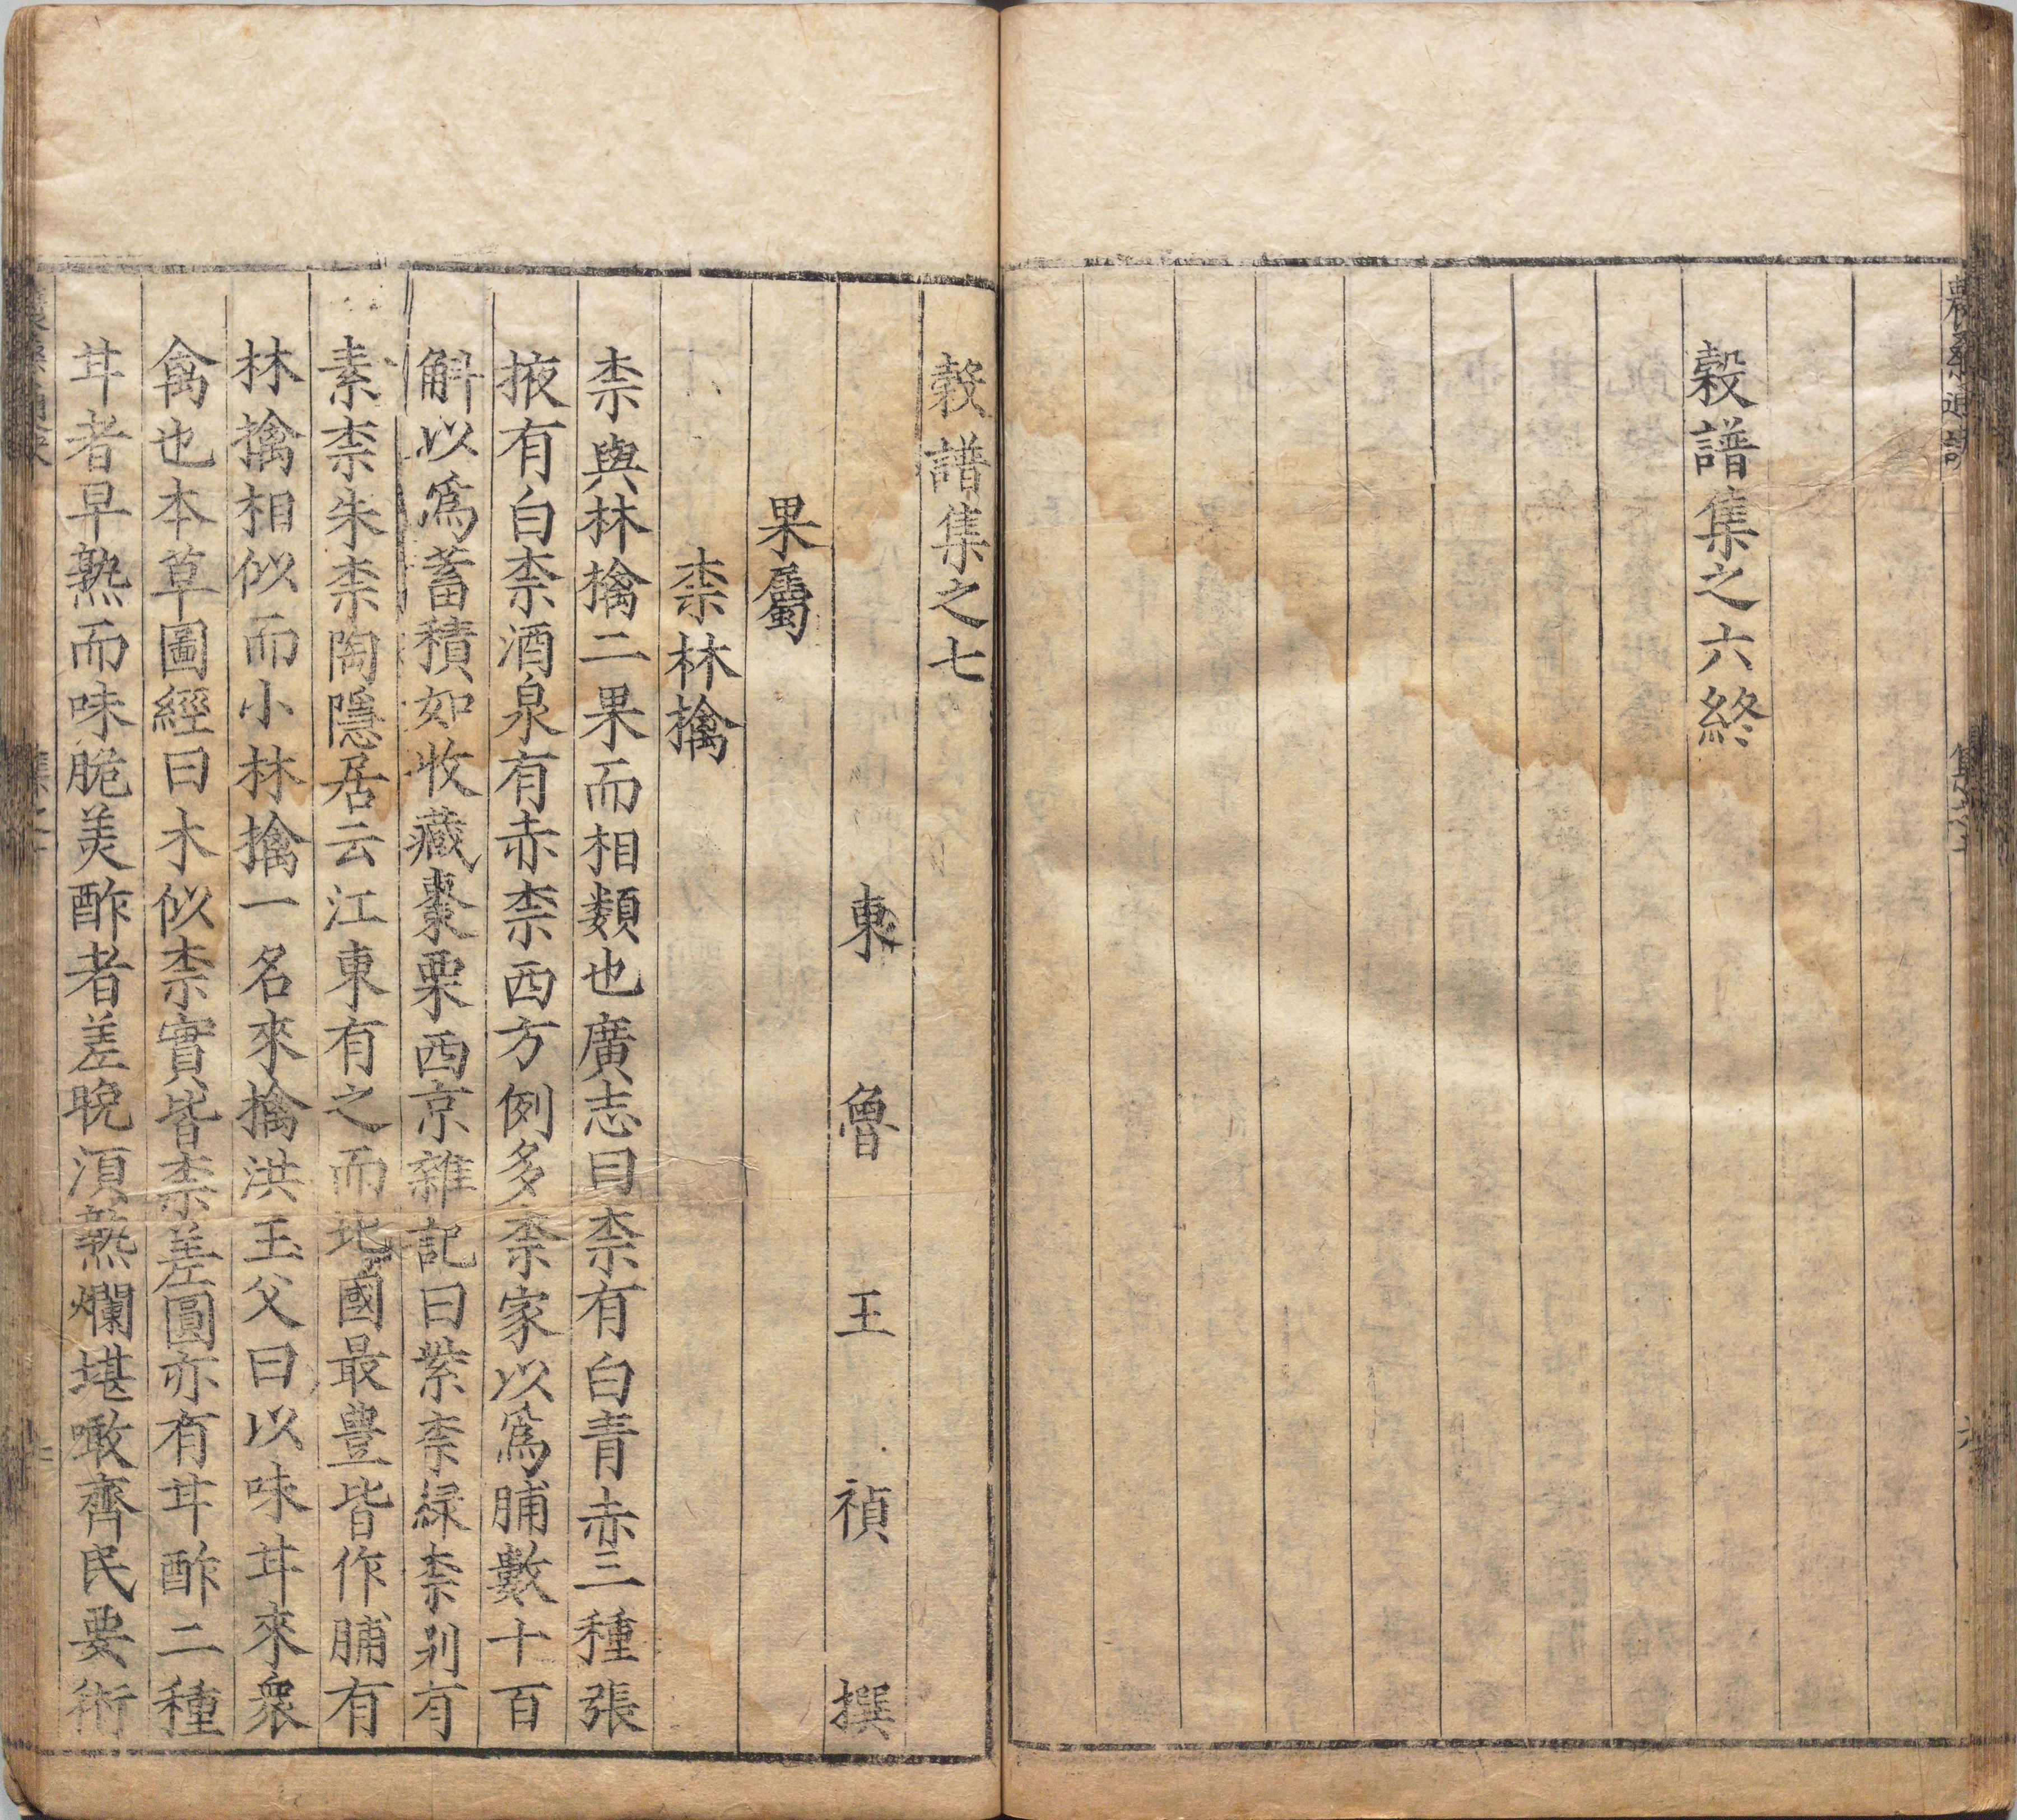 榖譜集之六終
榖譜集之七
東魯王禎撰
果屬
柰林擒
柰與林擒二果而相類也廣志曰柰有白青赤三種張
掖有白柰酒泉有赤柰西方例多柰家以爲脯數十百
斛以爲蓄積如收藏棗栗西京雜記曰紫柰緑柰别有
素柰朱柰陶隱居云江東有之而北國最豊皆作脯有
林擒相似而小林擒一名來擒洪玉父曰以味甘來衆
禽也本草圖經曰木似柰實皆柰差圓亦有甘酢二種
甘者早熟而味脆美酢者差晚湏熟爛堪噉齊民要術